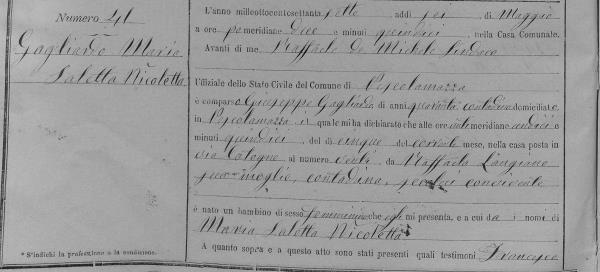 Numero 41
Gagliardo Maria
Saletta Nicoletta
* S'indichi la professione o la condizione.
L'anno milleottocentosettantasette addì sei di Maggio
a ore pomeridiane due e minuti quindici, nella Casa Comunale.
Avanti di me Raffaele De Michele Sindaco
Uffiziale dello Stato Civile del Comune di Pescolamazza
è comparso Giuseppe Gagliardo, di anni quaranta contadino domiciliato
in Pescolamazza il quale mi ha dichiarato che alle ore antimeridiane undici e
minuti quindici, del dì cinque del corrente mese, nella casa posta in
via Cologne al numero venti, da Raffaela Langiano
sua moglie, contadina, seco lui convivente
è nato un bambino di sesso femminino che egli mi presenta, e a cui da i nomi di
Maria Saletta Nicoletta
A quanto sopra e a questo atto sono stati presenti quali testimoni Francesco